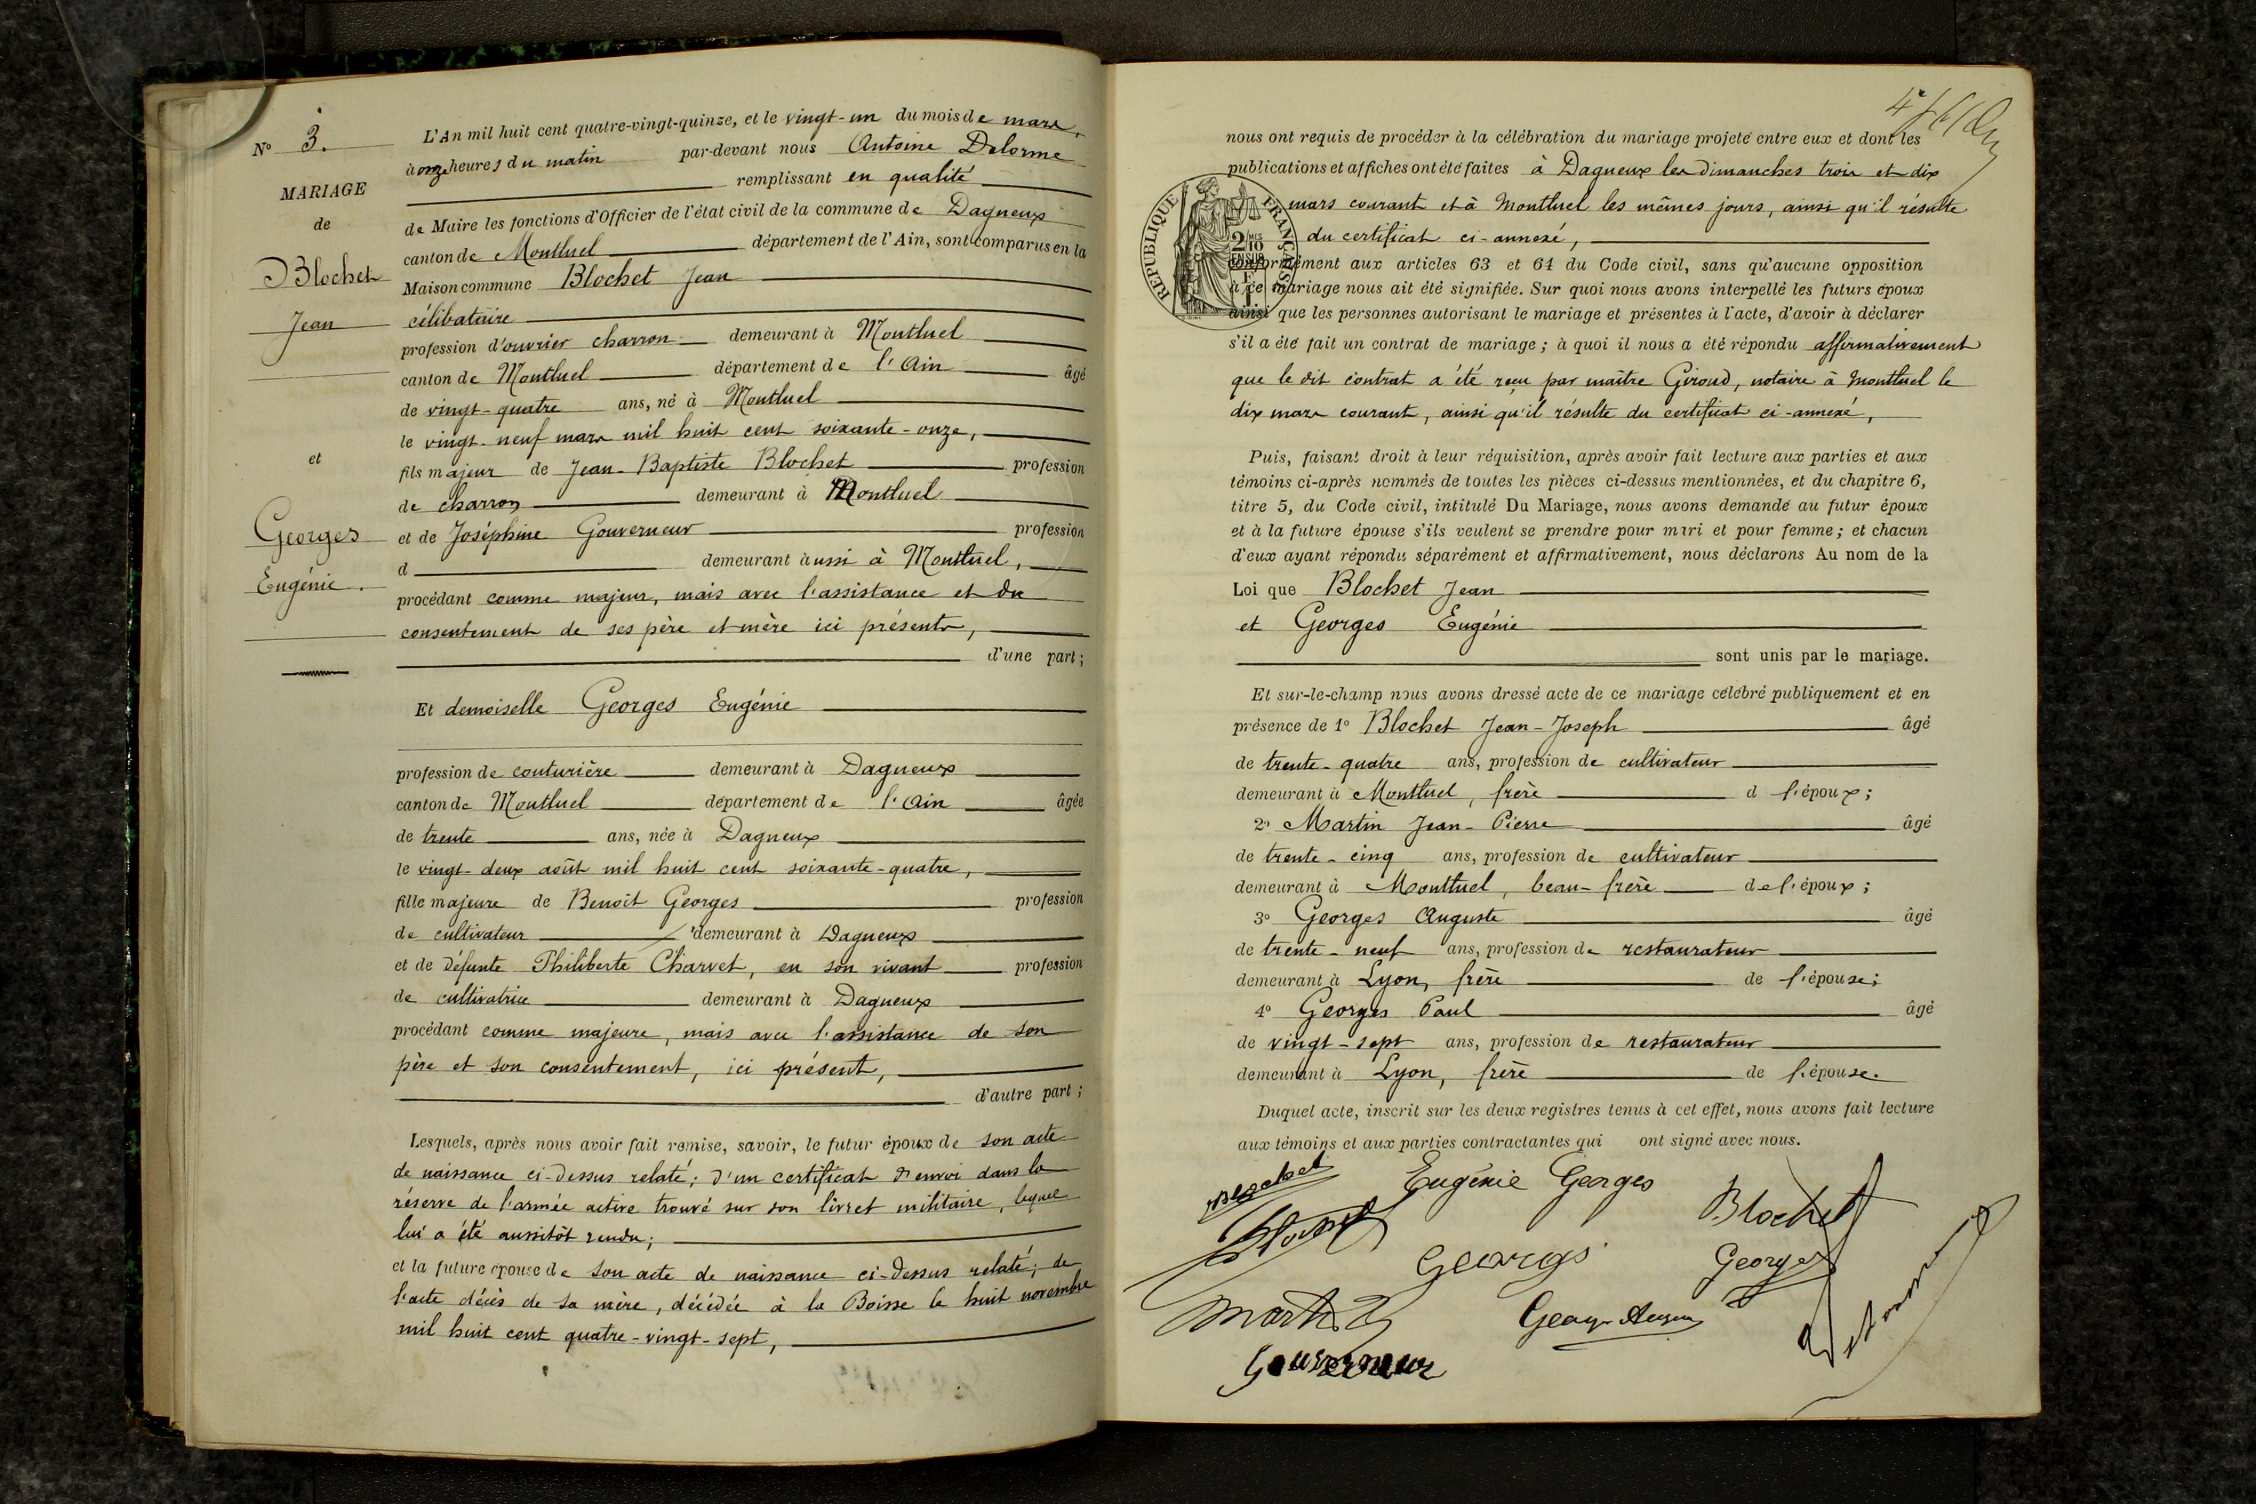 Nº 3.
MARIAGE
de
Blochet
Jean
et
Georges
Eugénie.
L'An mil huit cent quatre-vingt-quinze, et le vingt-un du mois de mars,
à onze heures du matin par-devant nous Antoine Delorme
remplissant en qualité
de Maire les fonctions d'Officier de l'état civil de la commune de Dagneux
canton de Montluel département de l'Ain, sont comparus en la
Maison commune Blochet Jean
célibataire
profession d'ouvrier charron demeurant à Montluel
canton de Montluel département de l'Ain âgé
de vingt-quatre ans, né à Montluel
le vingt-neuf mars mil huit cent soixante-onze,
fils majeur de Jean-Baptiste Blochet profession
de charron demeurant à Montluel
et de Joséphine Gouverneur profession
d demeurant aussi à Montluel,
procédant comme majeur, mais avec l'assistance et du
consentement de ses père et mère ici présents,
d'une part;
Et demoiselle Georges Eugénie
profession de couturière demeurant à Dagneux
canton de Montluel département de l'Ain âgée
de trente ans, née à Dagneux
le vingt-deux août mil huit cent soixante-quatre,
fille majeure de Benoît Georges profession
de cultivateur demeurant à Dagneux
et de défunte Philiberte Charvet, en son vivant profession
de cultivatrice demeurant à Dagneux
procédant comme majeure, mais avec l'assistance de son
père et son consentement, ici présent,
d'autre part;
Lesquels, après nous avoir fait remise, savoir, le futur époux de son acte
de naissance ci-dessus relaté; d'un certificat d'envoi dans la
réserve de l'armée active trouvé sur son livret militaire, lequel
lui a été aussitôt rendu;
et la future épouse de son acte de naissance ci-dessus relaté; de
l'acte décès de sa mère, décédée à la Boisse le huit novembre
mil huit cent quatre-vingt-sept,
nous ont requis de procéder à la célébration du mariage projeté entre eux et dont les
publications et affiches ont été faites à Dagneux les dimanches trois et dix
mars courant et à Montluel les mêmes jours, ainsi qu'il résulte
du certificat ci-annexé,
RÉPUBLIQUE FRANÇAISE
2/10
EN SUS
conformément aux articles 63 et 64 du Code civil, sans qu'aucune opposition
à ce mariage nous ait été signifiée. Sur quoi nous avons interpellé les futurs époux
ainsi que les personnes autorisant le mariage et présentes à l'acte, d'avoir à déclarer
s'il a été fait un contrat de mariage; à quoi il nous a été répondu affirmativement
que le dit contrat a été reçu par maître Giroud, notaire à Montluel le
dix mars courant, ainsi qu'il résulte du certificat ci-annexé,
Puis, faisant droit à leur réquisition, après avoir fait lecture aux parties et aux
témoins ci-après nommés de toutes les pièces ci-dessus mentionnées, et du chapitre 6,
titre 5, du Code civil, intitulé Du Mariage, nous avons demandé au futur époux
et à la future épouse s'ils veulent se prendre pour mari et pour femme; et chacun
d'eux ayant répondu séparément et affirmativement, nous déclarons Au nom de la
Loi que Blochet Jean
et Georges Eugénie
sont unis par le mariage.
Et sur-le-champ nous avons dressé acte de ce mariage célébré publiquement et en
présence de 1º Blochet Jean-Joseph âgé
de trente-quatre ans, profession de cultivateur
demeurant à Montluel, frère d l'époux;
2º Martin Jean-Pierre âgé
de trente-cinq ans, profession de cultivateur
demeurant à Montluel, beau-frère de l'époux;
3º Georges Auguste âgé
de trente-neuf ans, profession de restaurateur
demeurant à Lyon, frère de l'épouse;
4º Georges Paul âgé
de vingt-sept ans, profession de restaurateur
demeurant à Lyon, frère de l'épouse.
Duquel acte, inscrit sur les deux registres tenus à cet effet, nous avons fait lecture
aux témoins et aux parties contractantes qui ont signé avec nous.
Blochet Eugénie Georges Blochet
Georges Georges
Martin
Gouverneur Delorme